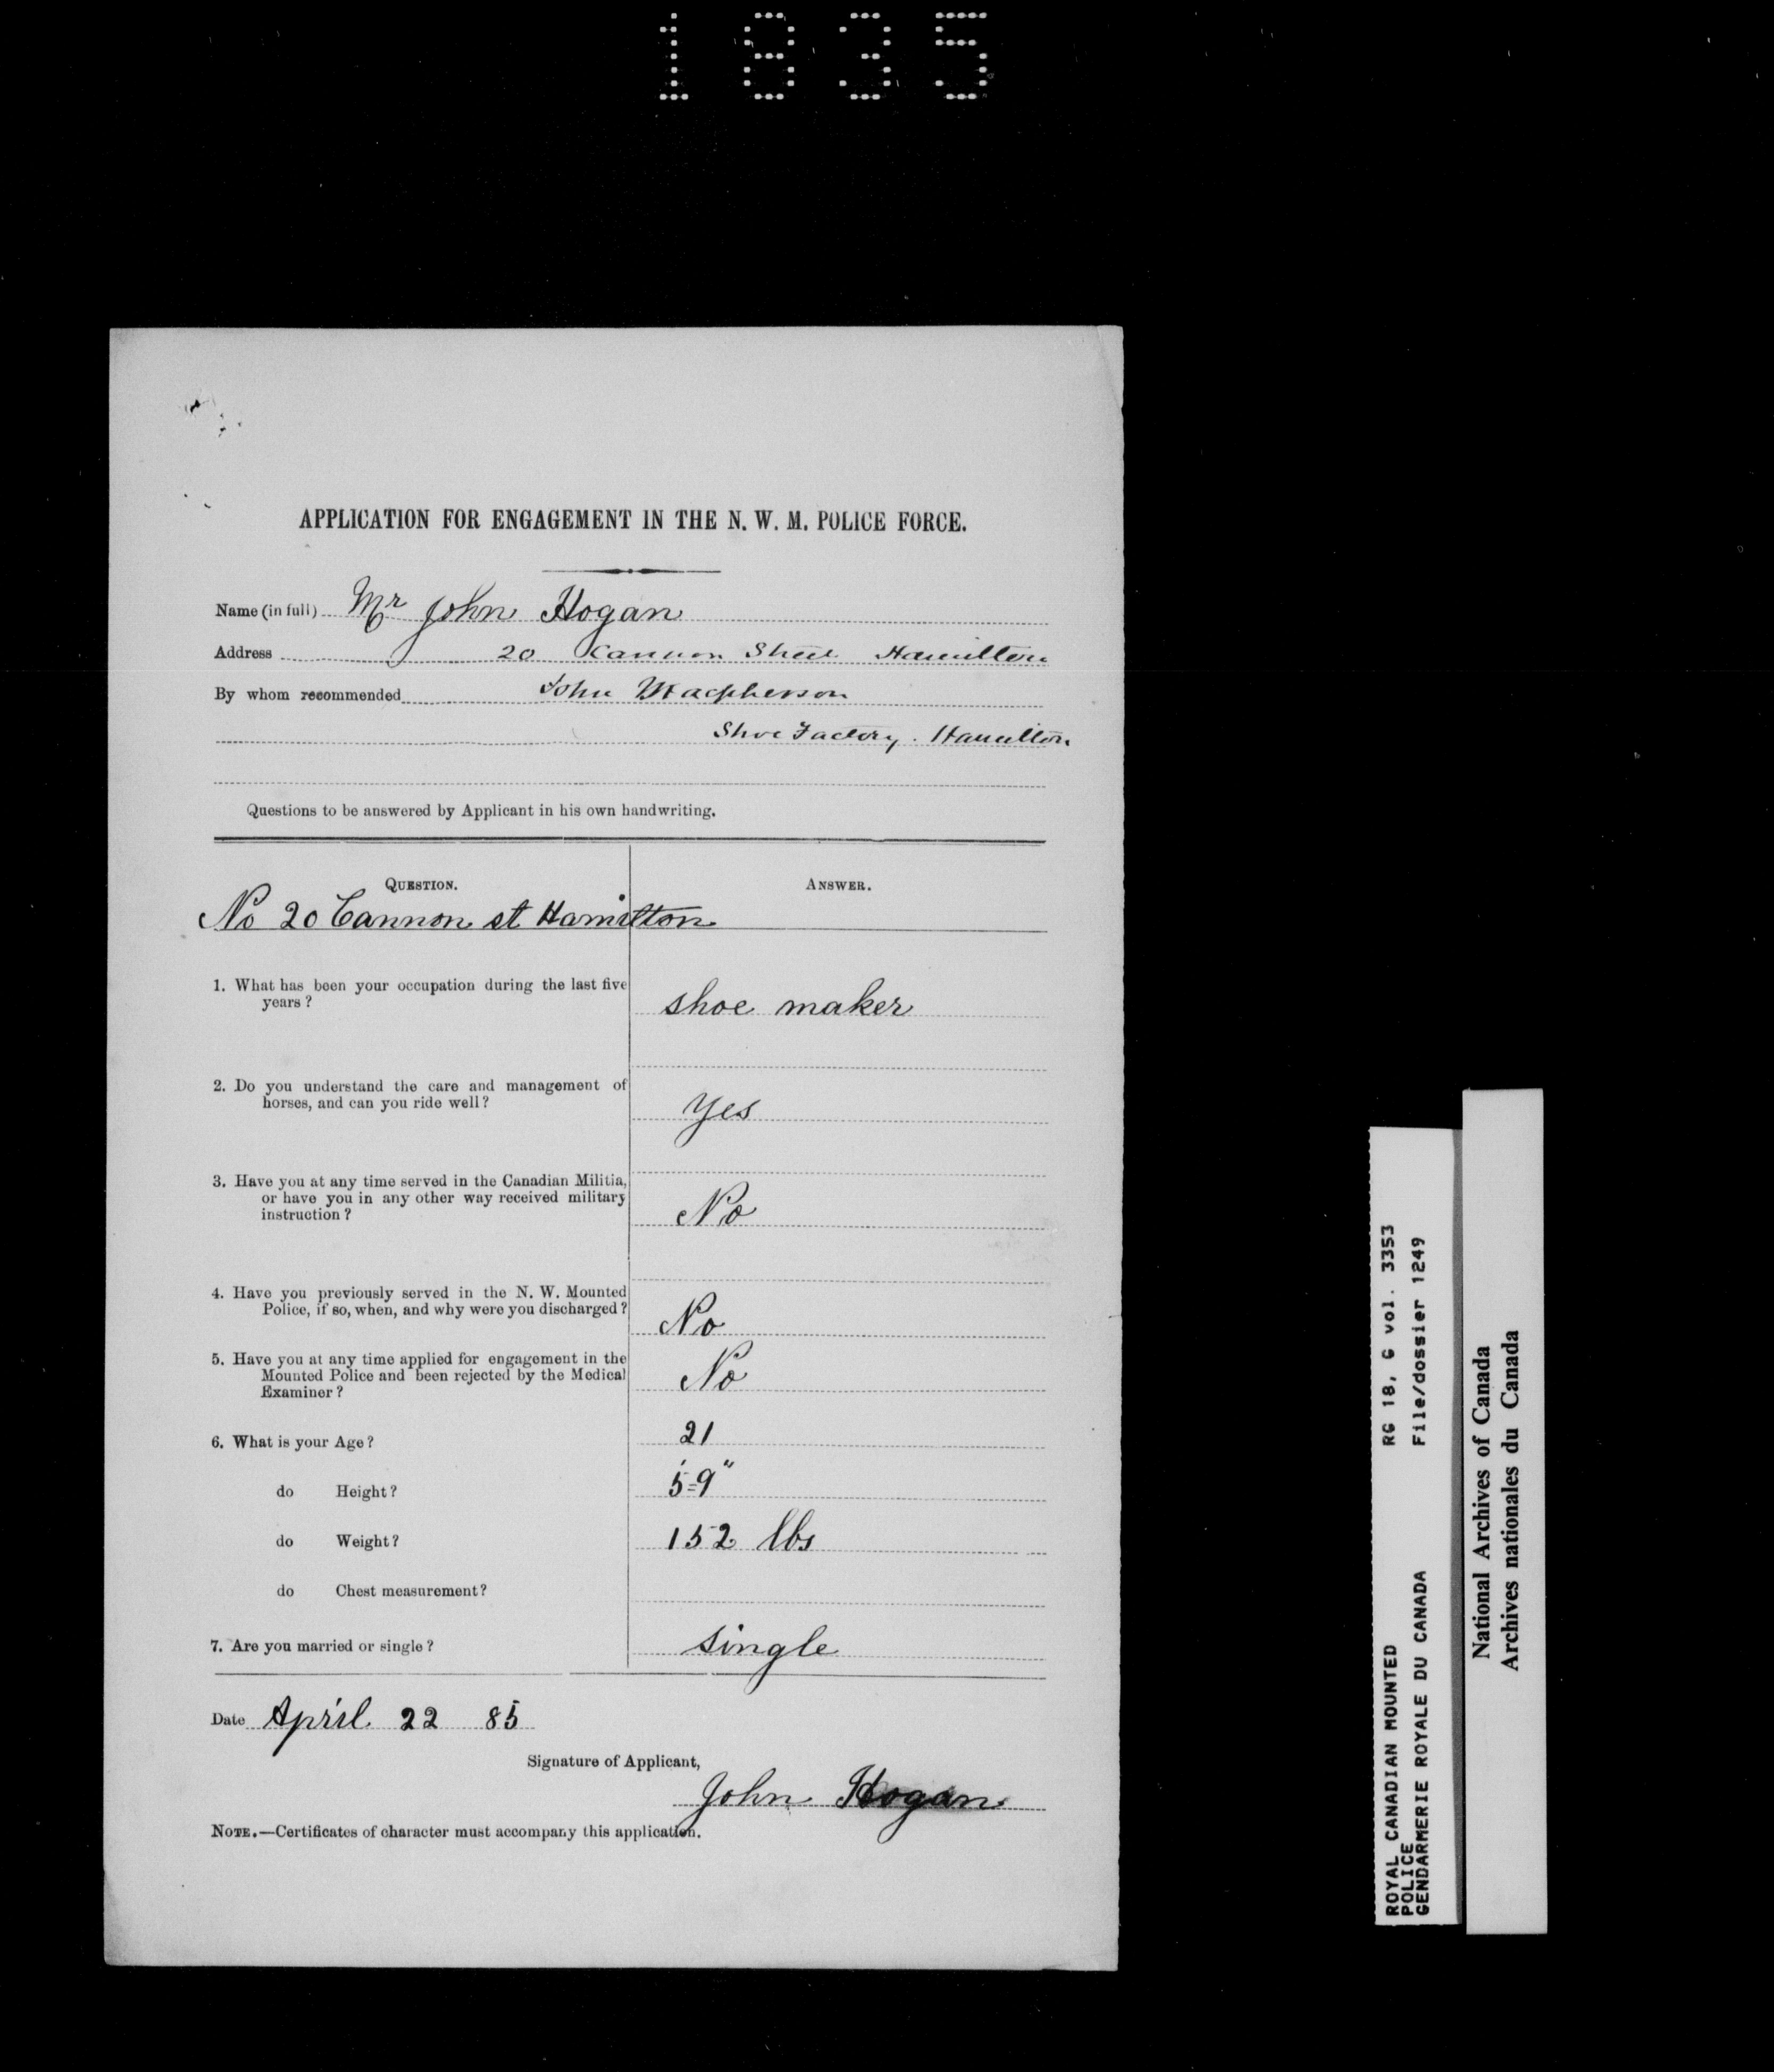 1835
APPLICATION FOR ENGAGEMENT IN THE N. W. M. POLICE FORCE.
Name (in full) Mr John Hogan
Address 20 Cannon Street Hamilton
By whom recommended John Macpherson
Shoe Factory. Hamilton
Questions to be answered by Applicant in his own handwriting.
QUESTION. ANSWER.
No 20 Cannon st Hamilton
1. What has been your occupation during the last five
years? shoe maker
2. Do you understand the care and management of
horses, and can you ride well? Yes
3. Have you at any time served in the Canadian Militia,
or have you in any other way received military
instruction? No
4. Have you previously served in the N. W. Mounted
Police, if so, when, and why were you discharged? No
5. Have you at any time applied for engagement in the
Mounted Police and been rejected by the Medical
Examiner? No
6. What is your Age? 21
do Height? 5'-9"
do Weight? 152 lbs
do Chest measurement?
7. Are you married or single? single
Date April 22 85
Signature of Applicant,
John Hogan
NOTE.—Certificates of character must accompany this application.
ROYAL CANADIAN MOUNTED RG 18, G vol. 3353
POLICE
GENDARMERIE ROYALE DU CANADA File/dossier 1249
National Archives of Canada
Archives nationales du Canada